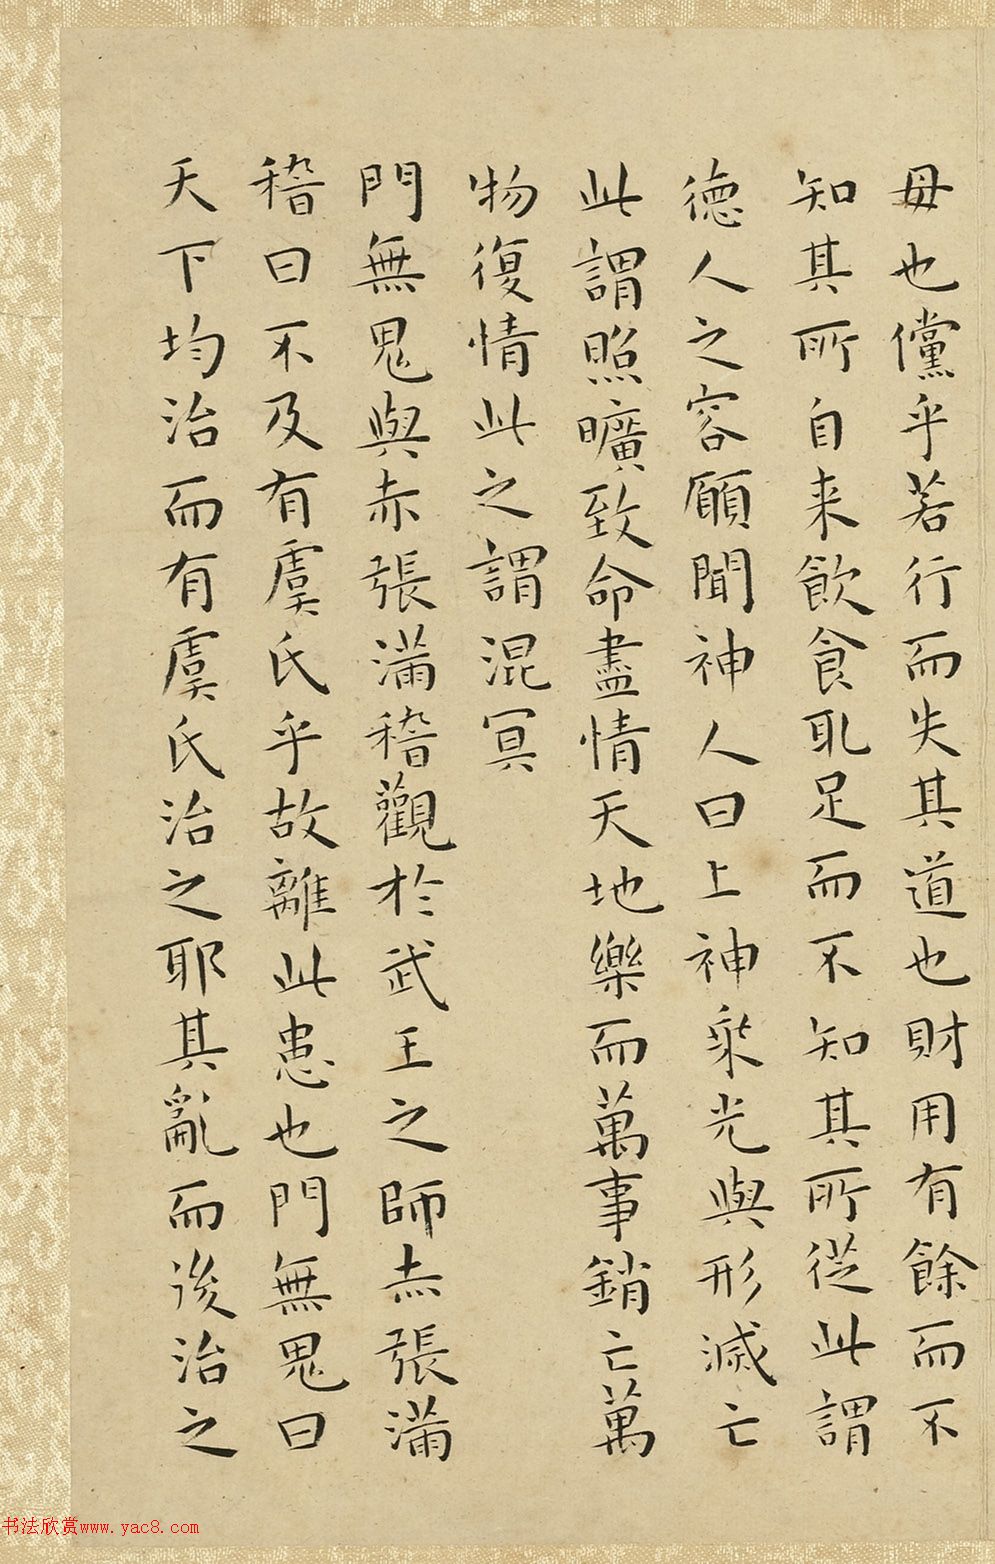 母也儻乎若行而失其道也財用有餘而不
知其所自来飲食取足而不知其所從此謂
德人之容願聞神人曰上神乘光與形滅亡
此謂照曠致命盡情天地樂而萬事銷亡萬
物復情此之謂混冥
門無鬼與赤張滿稽觀於武王之師赤張滿
稽曰不及有虞氏乎故離此患也門無鬼曰
天下均治而有虞氏治之耶其亂而後治之
书法欣赏www.yac8.com